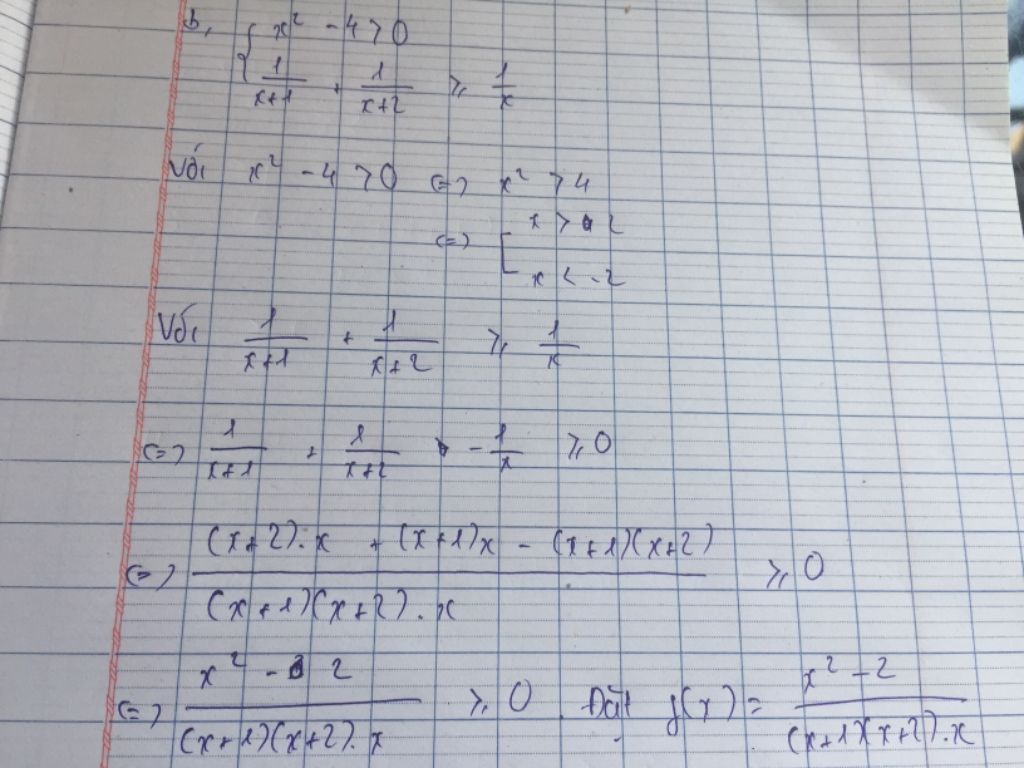 b, { x² - 4 > 0
1/(x+1) + 1/(x+2) ≥ 1/x
Với x² - 4 > 0 <=> x² > 4
<=> [ x > 2
x < -2
Với 1/(x+1) + 1/(x+2) ≥ 1/x
<=> 1/(x+1) + 1/(x+2) - 1/x ≥ 0
<=> ((x+2).x + (x+1)x - (x+1)(x+2))/((x+1)(x+2).x) ≥ 0
<=> (x² - 2)/((x+1)(x+2).x) ≥ 0. Đặt f(x) = (x² - 2)/((x+1)(x+2).x)